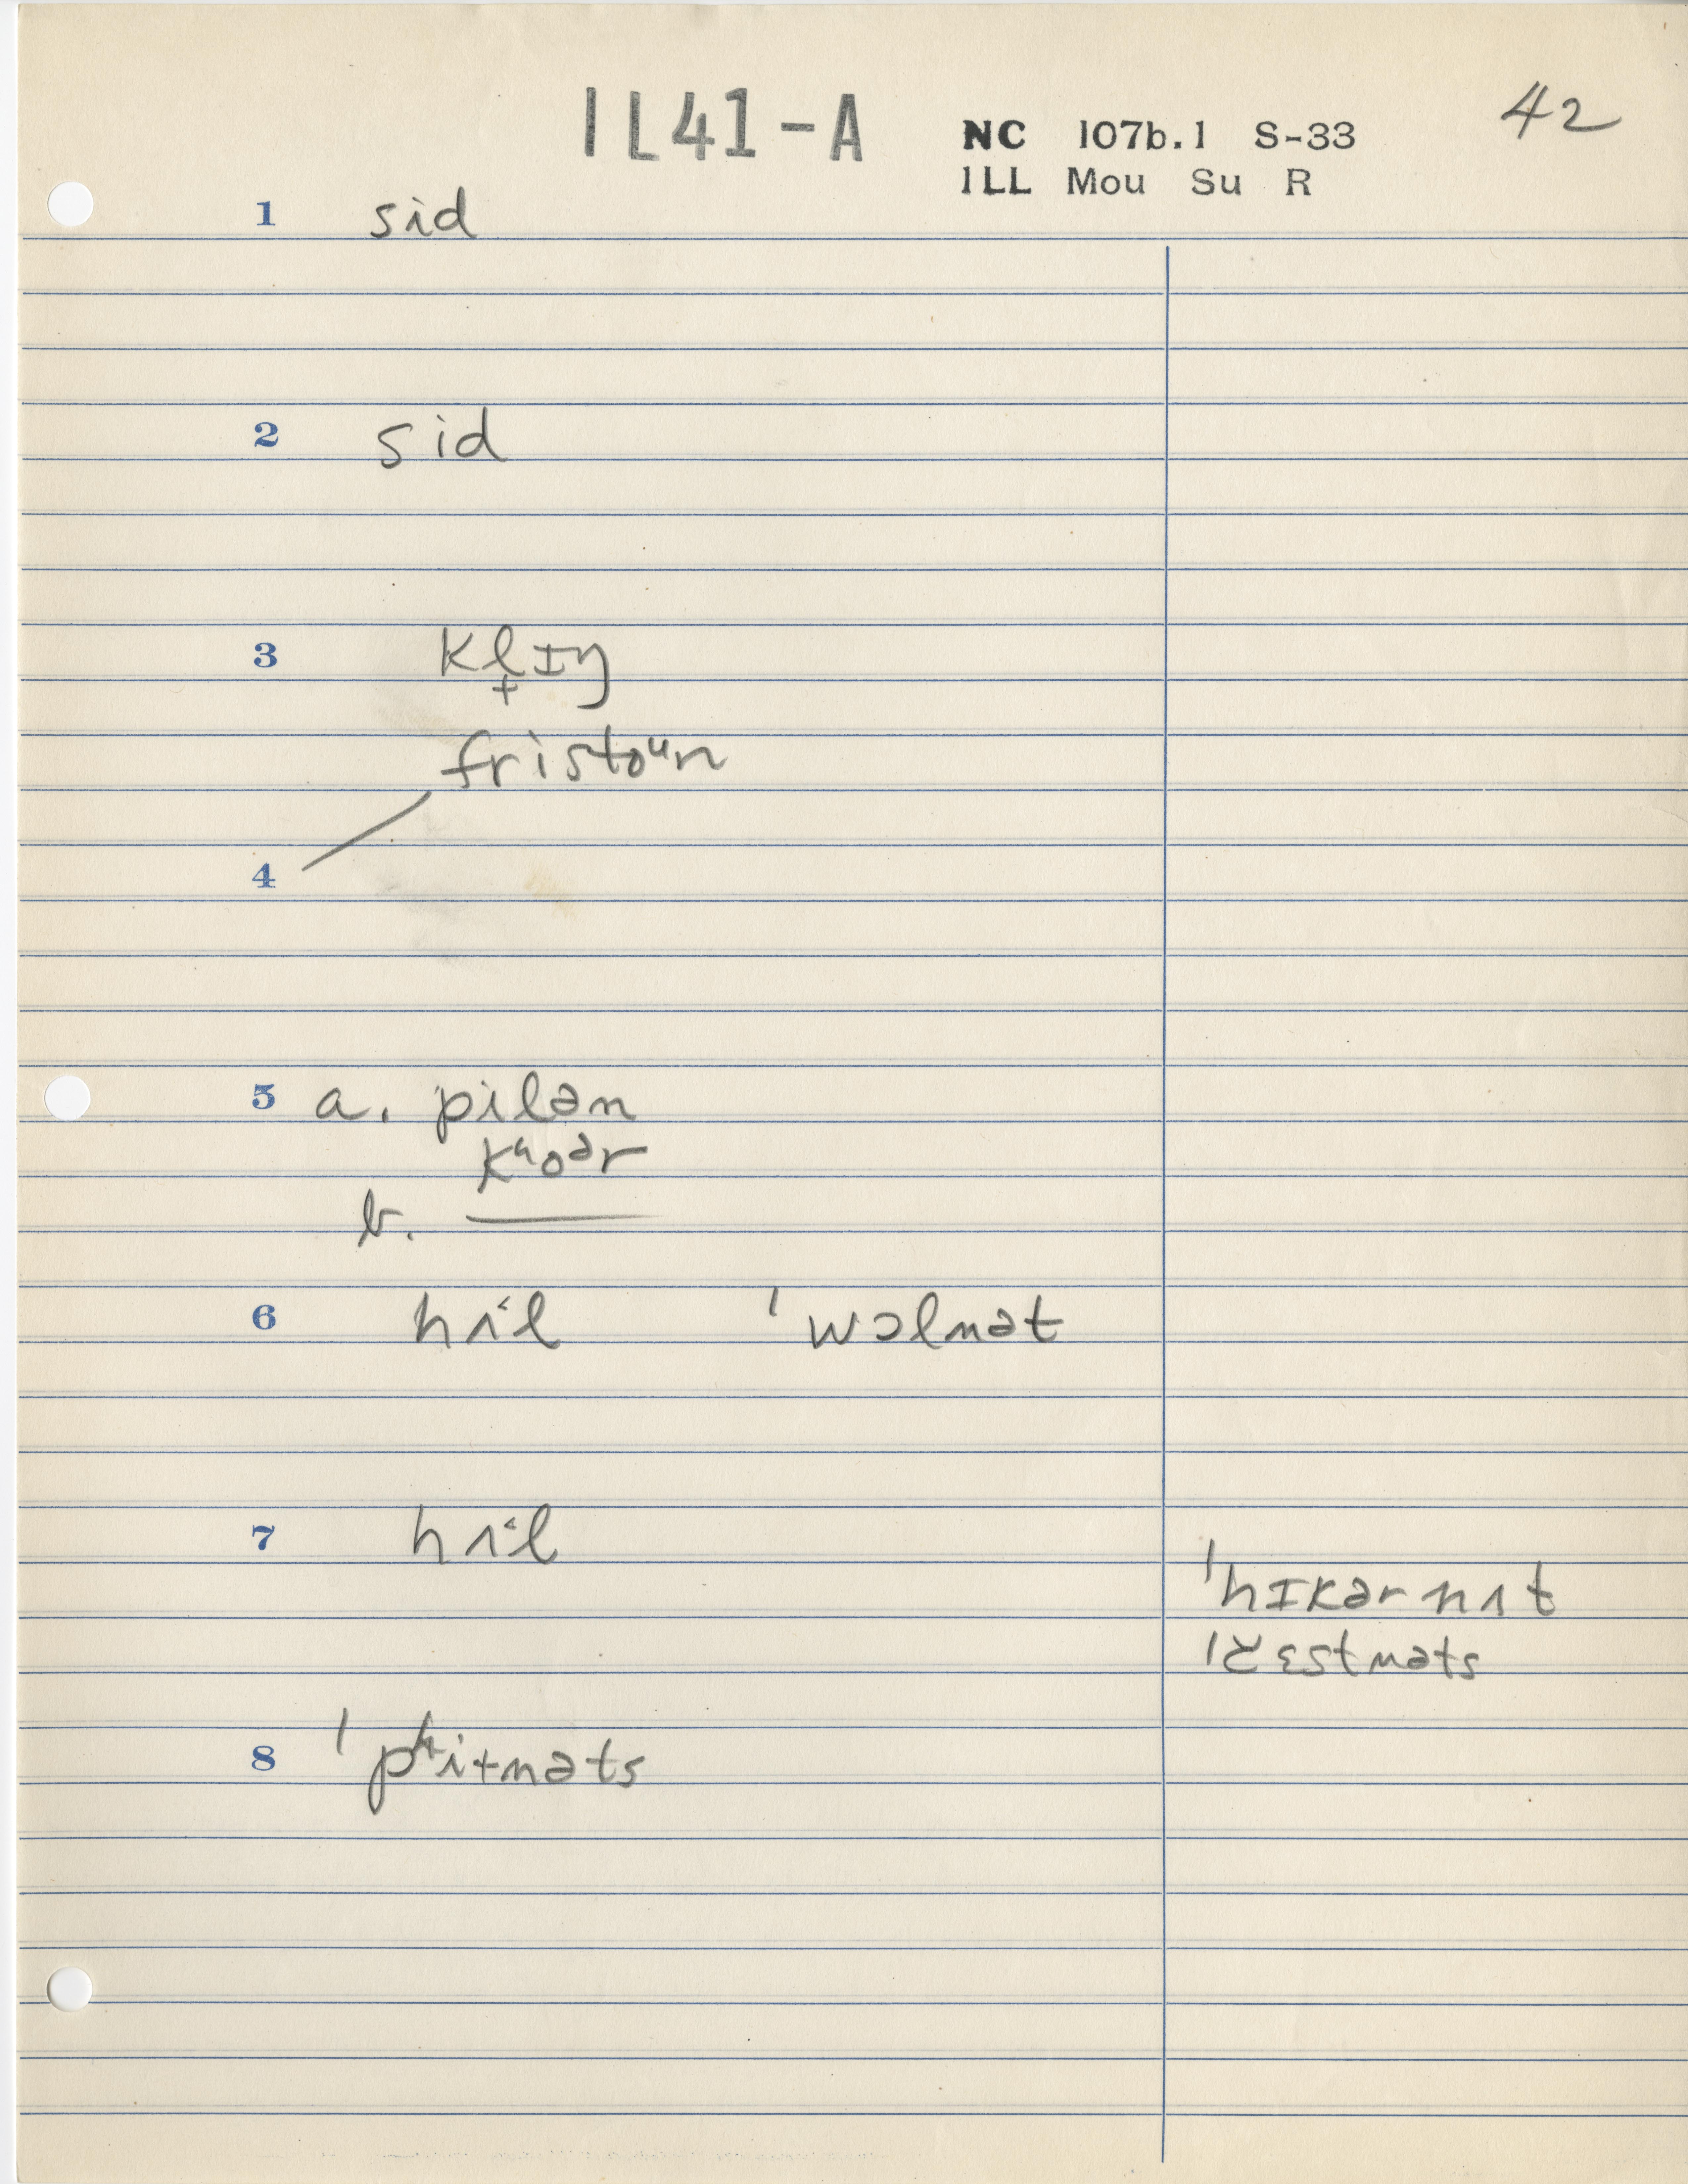 1L41-A
NC 107b.1 S-33
42
1LL Mou Su R
1 sid
2 sid
3 kl̟ɪŋ
fristoᵘn
4
5 a. pilən
kʰoᵊr
b. —
6 hʌ˂l ˈwɔlnət
7 hʌ˂l
ˈhɪkərnʌt
8 ˈpʰitnəts